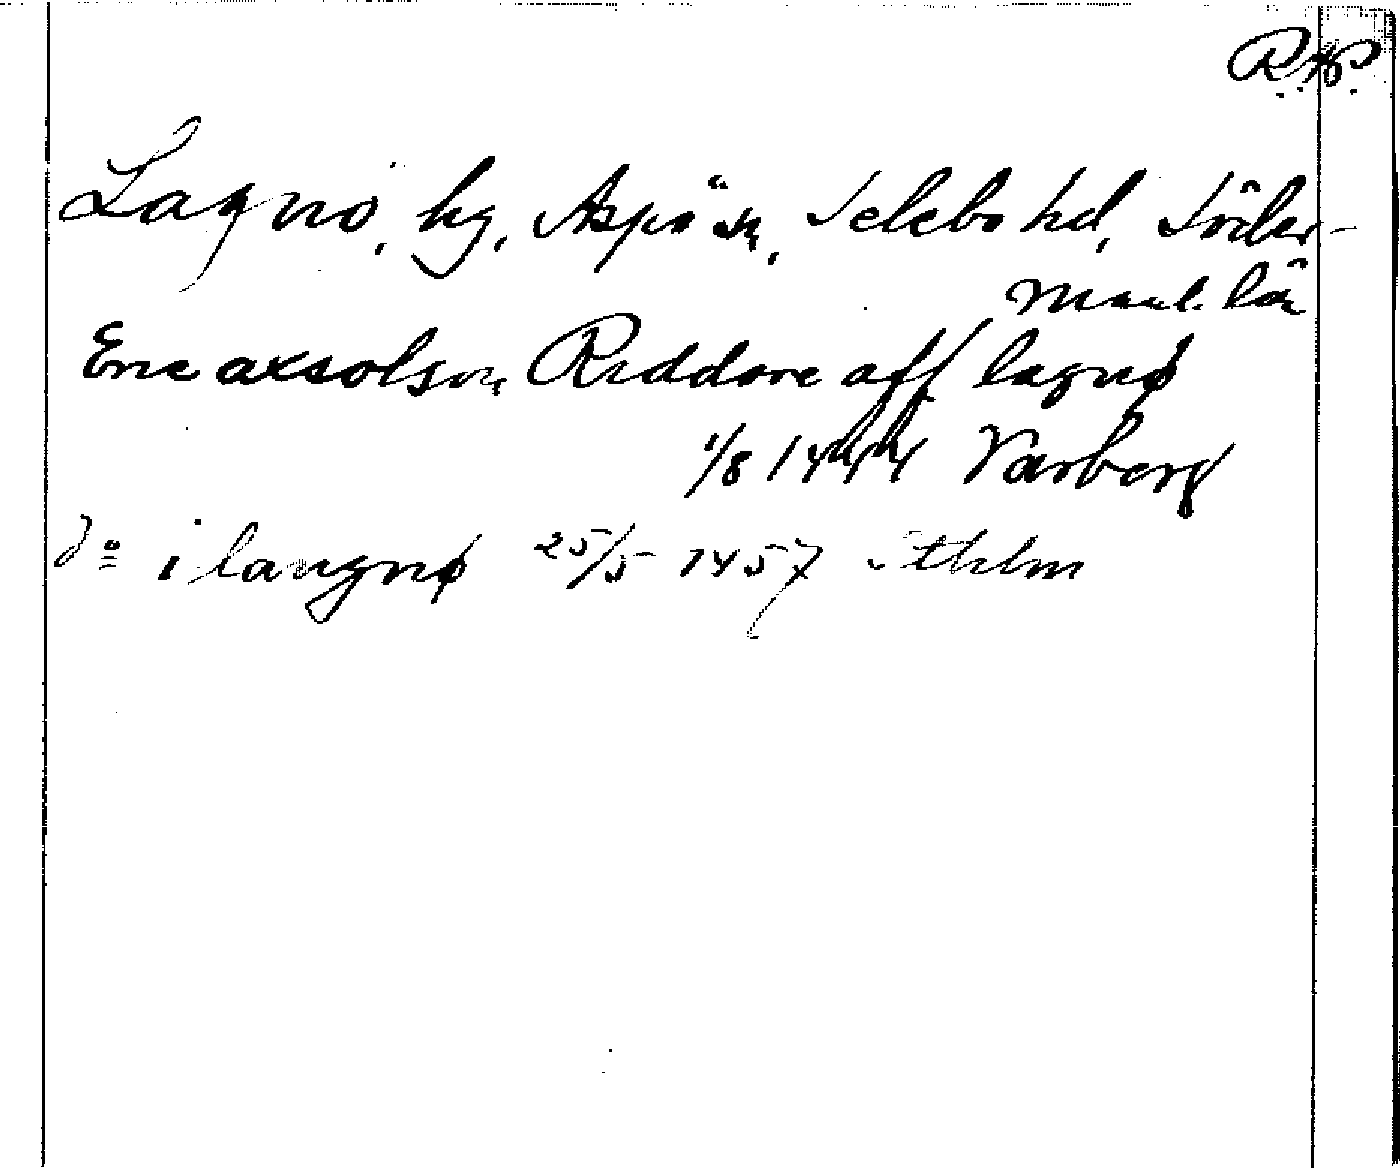 RAP.
Lagnö, hg, Aspö sn, Selebo hd, Söder-
manl. län
Eric axsolson Riddare aff lagnø
1/8 1444 Varberg
do i langnø 25/5 1457 Sthlm